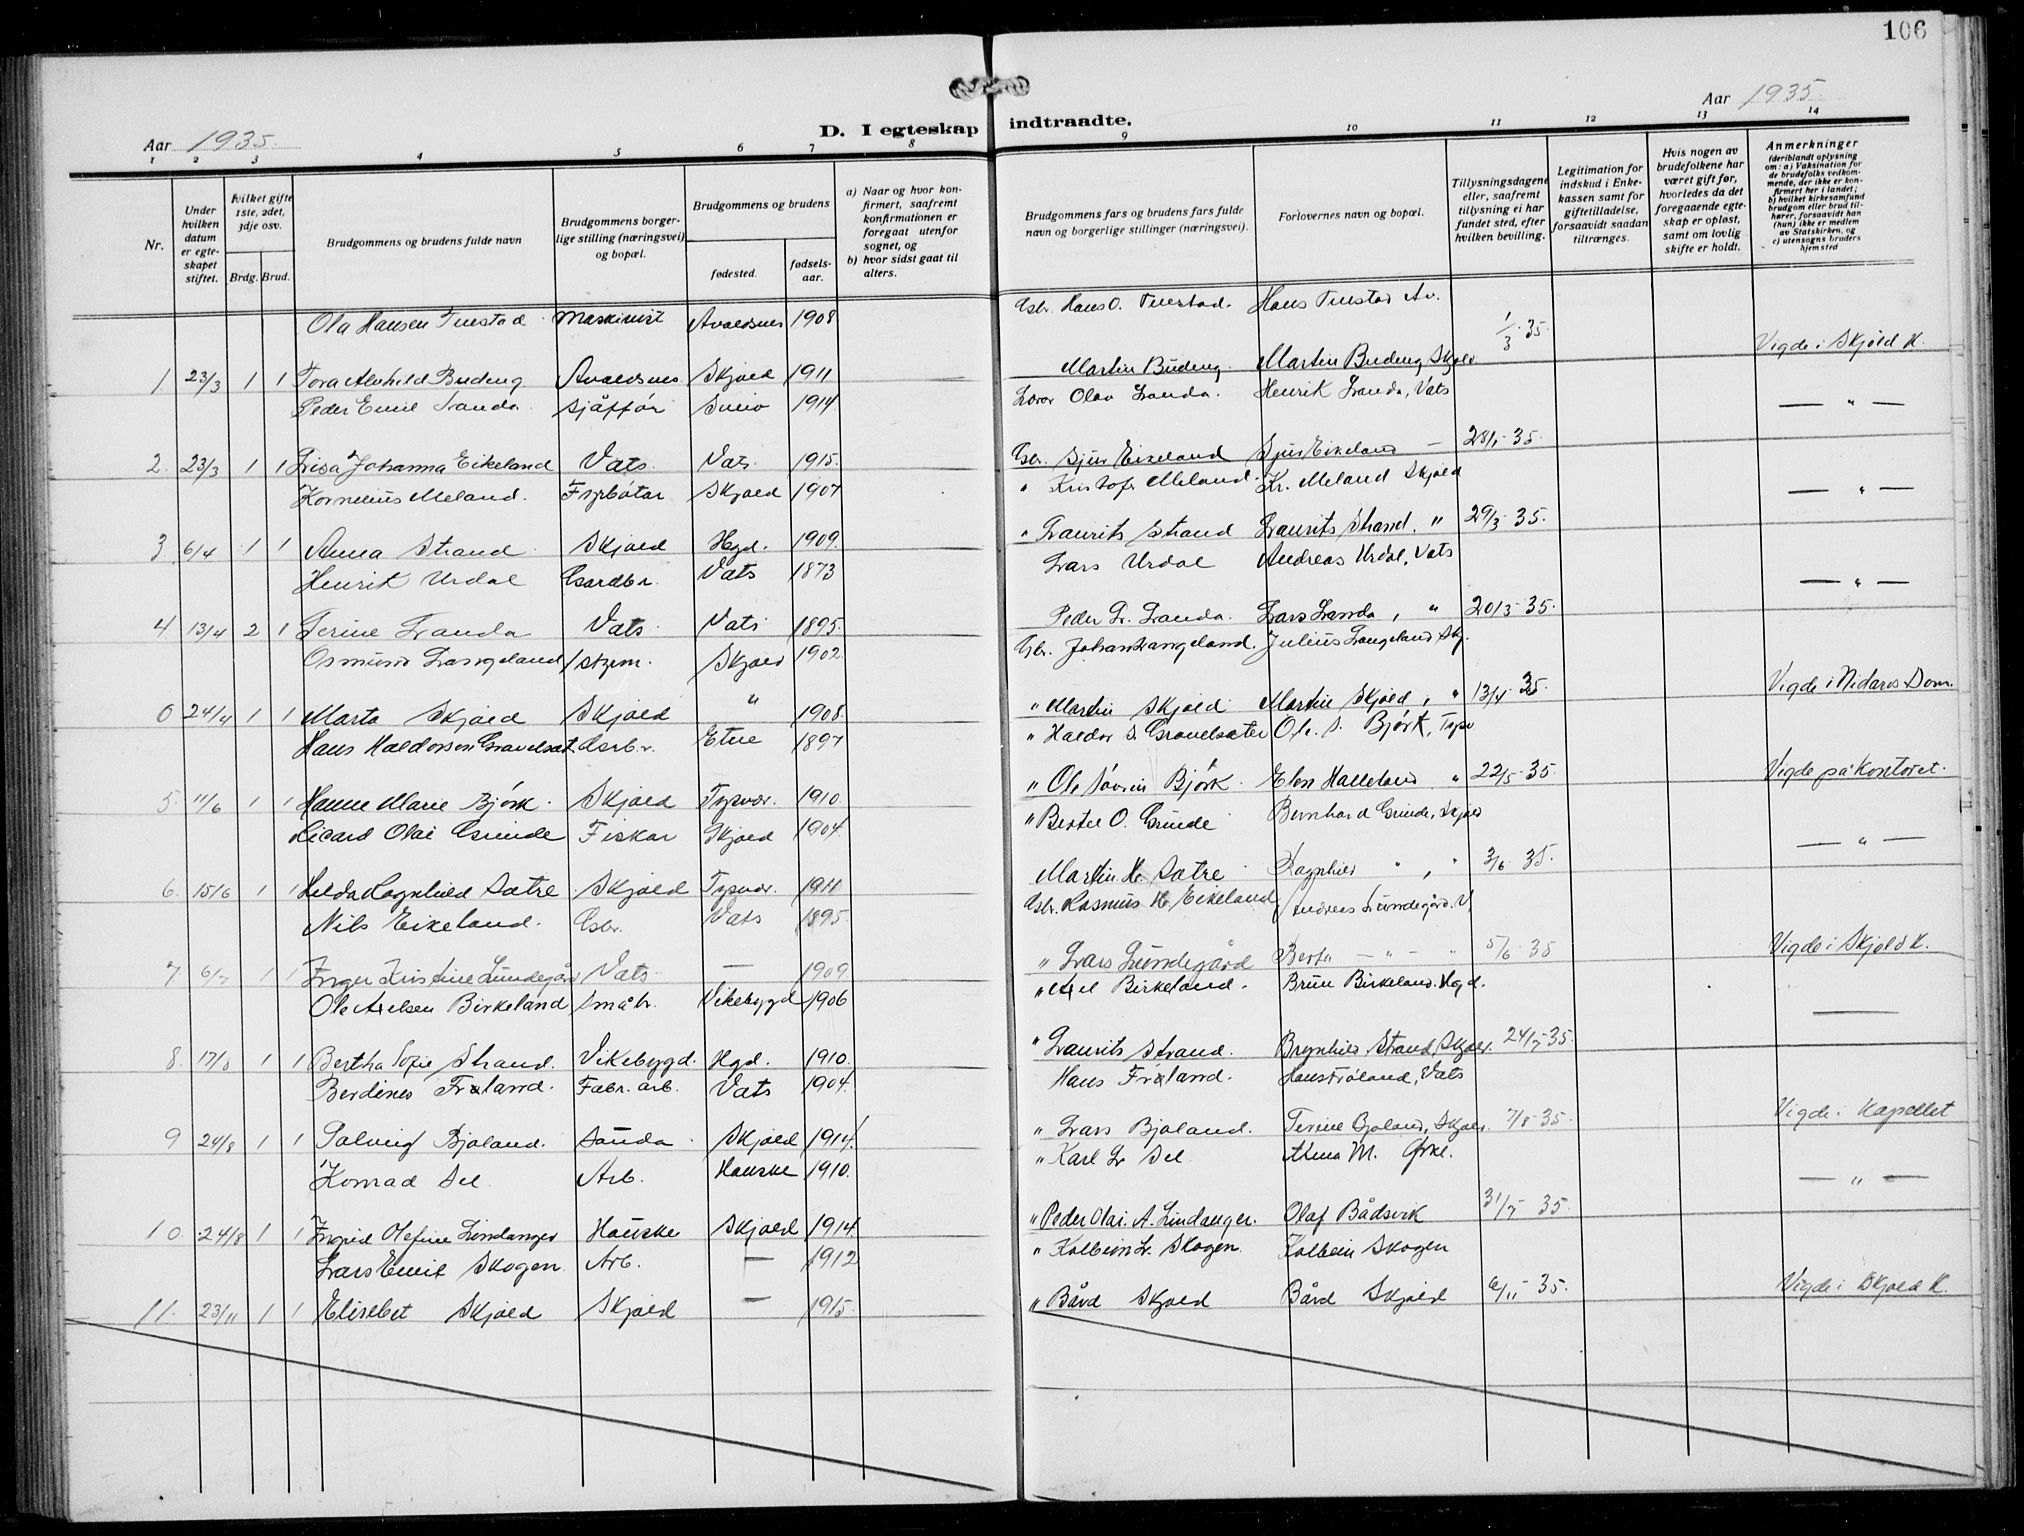 106
Aar 1935.
Aar 1935.
D. I egteskap indtraadte.
1 2 3 4 5 6 7 8 9 10 11 12 13 14
Nr.
Under hvilken datum er egteskapet stiftet.
hvilket gifte 1ste, 2det, 3dje osv.
Brdg. Brud.
Brudgommens og brudens fulde navn
Brudgommens borgerlige stilling (næringsvei) og bopæl.
Brudgommens og brudens
fødested.
fødselsaar.
a) Naar og hvor konfirmert, saafremt konfirmationen er foregaat utenfor sognet, og
b) hvor sidst gaat til alters.
Brudgommens fars og brudens fars fulde navn og borgerlige stillinger (næringsvei).
Forlovernes navn og bopæl.
Tillysningsdagene eller, saafremt tillysning ei har fundet sted, efter hvilken bevilling.
Legitimation for indskud i Enkekassen samt for giftetilladelse, forsaavidt saadan tiltrænges.
Hvis nogen av brudefolkene har været gift før, hvorledes da det foregaaende egteskap er opløst, samt om lovlig skifte er holdt.
Anmerkninger
(deriblandt oplysning om: a) Vaksination for de brudefolks vedkommende, der ikke er konfirmert her i landet; b) hvilket kirkesamfund brudgom eller brud tilhører, forsaavidt han (hun) ikke er medlem av Statskirken, og c) utensogns bruders hjemsted
Ola Hansen Maskinist Avaldsnes 1908 Gbr. Hans O. Hans Av.
1 23/3 1 1 Tora Alvhild Budeng Avaldsnes Skjold 1911 Martin Budeng. Martin Budeng, Skjold 1/3-35. Vigde i Skjold K.
Peder Emil Landa. Sjåffør Sveio 1914 Lærar Olav Landa. Henrik Landa, Vats
2. 23/3 1 1 Lisa Johanna Eikeland Vats. Vats. 1915. Gbr. Sjur Eikeland Sjur Eikeland — 28/ 35. — " —
Kornelius Meland. Fyrbøtar Skjold 1907 " Kristofer Meland. Kr. Meland Skjold
3 6/4 1 1 Anna Strand Skjold Hgd. 1909. " Laurits Strand Laurits Strand. " 29/3-35. — " —
Henrik Urdal Gardbr. Vats 1873 Lars Urdal Andreas Urdal, Vats
4 13/4 2 1 Serine Landa Vats Vats 1895. Peder L. Landa. Lars Landa, " 20/3-35. — " —
Osmund Langeland Skjold 1902. Gbr. Johan Langeland. Julius Langeland Skj.
0 24/4 1 1 Marta Skjold Skjold " 1908. " Martin Skjold Martin Skjold, " 13/4-35. Vigde i Nidaros Dom.
Hans Haldorsen Gravelsæt Gardbr. Etne 1897 " Haldor S. Gravelsæter Ole S. Bjørk, Tysv
5. 11/6 1 1 Hanne Marie Bjørk. Skjold Tysvær. 1910. " Ole Søvrin Bjørk. Elen Halleland " 22/5-35. Vigde på Kontoret.
Ricard Olai Grinde Fiskar Skjold 1904. " Bertel O. Grinde Bernhard Grinde, Skjold
6. 15/6 1 1 Helda Ragnhild Sætre Skjold Tysvær. 1911 Martin H. Sætre Ragnhild " , " 3/6-35. — " —
Nils Eikeland. Gbr. Vats 1895. Gbr. Rasmus H. Eikeland Andreas Lundegård. V.
7 6/7 1 1 Inger Kristine Lundegård Vats — 1909 " Lars Lundegård Berta — " — " 5/6-35 Vigde i Skjold K.
Ole Axelsen Birkeland Småbr. Vikebygd 1906 " Axel Birkeland. Brun Birkeland. Hgd.
8. 17/8 1 1 Bertha Sofie Strand. Vikebygd. Hgd. 1910. " Laurits Strand. Brynhild Strand, Skjold. 24/7-35. ———
Berdines Frøland. Fabr. arb. Vats 1904. Hans Frøland. Hans Frøland, Vats
9 24/8 1 1 Solveig Bjoland. Sauda Skjold 1914. " Lars Bjoland. Terine Bjoland, Skjold. 7/8-35. Vigde i Kapellet
Konrad Sel Arb. Hauske 1910. " Karl L. Sel Alma M. Ørke.
10. 24/8 1 1 Ingrid Olefine Lindanger Hauske Skjold 1914. " Peder Olai A. Lindanger. Olaf Bådsvik 31/7 35. — " —
Lars Emil Skogen. Arb. — 1912 " Kolbein L. Skogen. Kolbein Skogen
11. 23/11 1 1 Elisebet Skjold Skjold — 1915. " Bård Skjold Bård Skjold 6/11-35. Vigde i Skjold K.